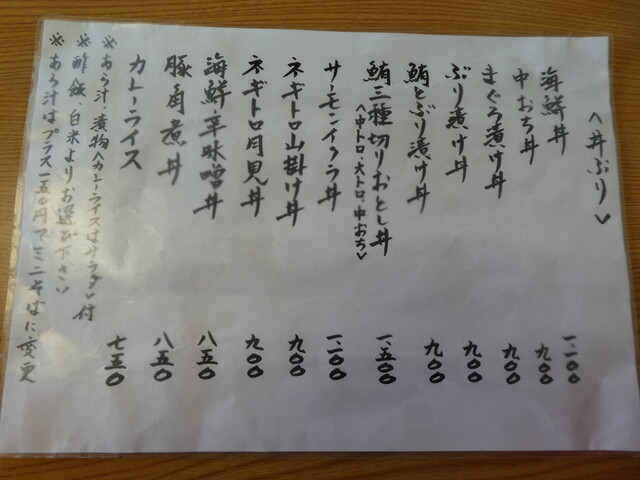 ＜丼ぶり＞
海鮮丼 一、二〇〇
中おち丼 九〇〇
まぐろ漬け丼 九〇〇
ぶり漬け丼 九〇〇
鮪とぶり漬け丼 九〇〇
鮪三種切りおとし丼 一、五〇〇
＜中トロ、大トロ、中おち＞
サーモンイクラ丼 一、二〇〇
ネギトロ山掛け丼 九〇〇
ネギトロ月見丼 九〇〇
海鮮辛味噌丼 八五〇
豚角煮丼 八五〇
カレーライス 七五〇
※あら汁、漬物＜カレーライスはサラダ＞付
※酢飯、白米よりお選び下さい
※あら汁はプラス一五〇円でミニそばに変更